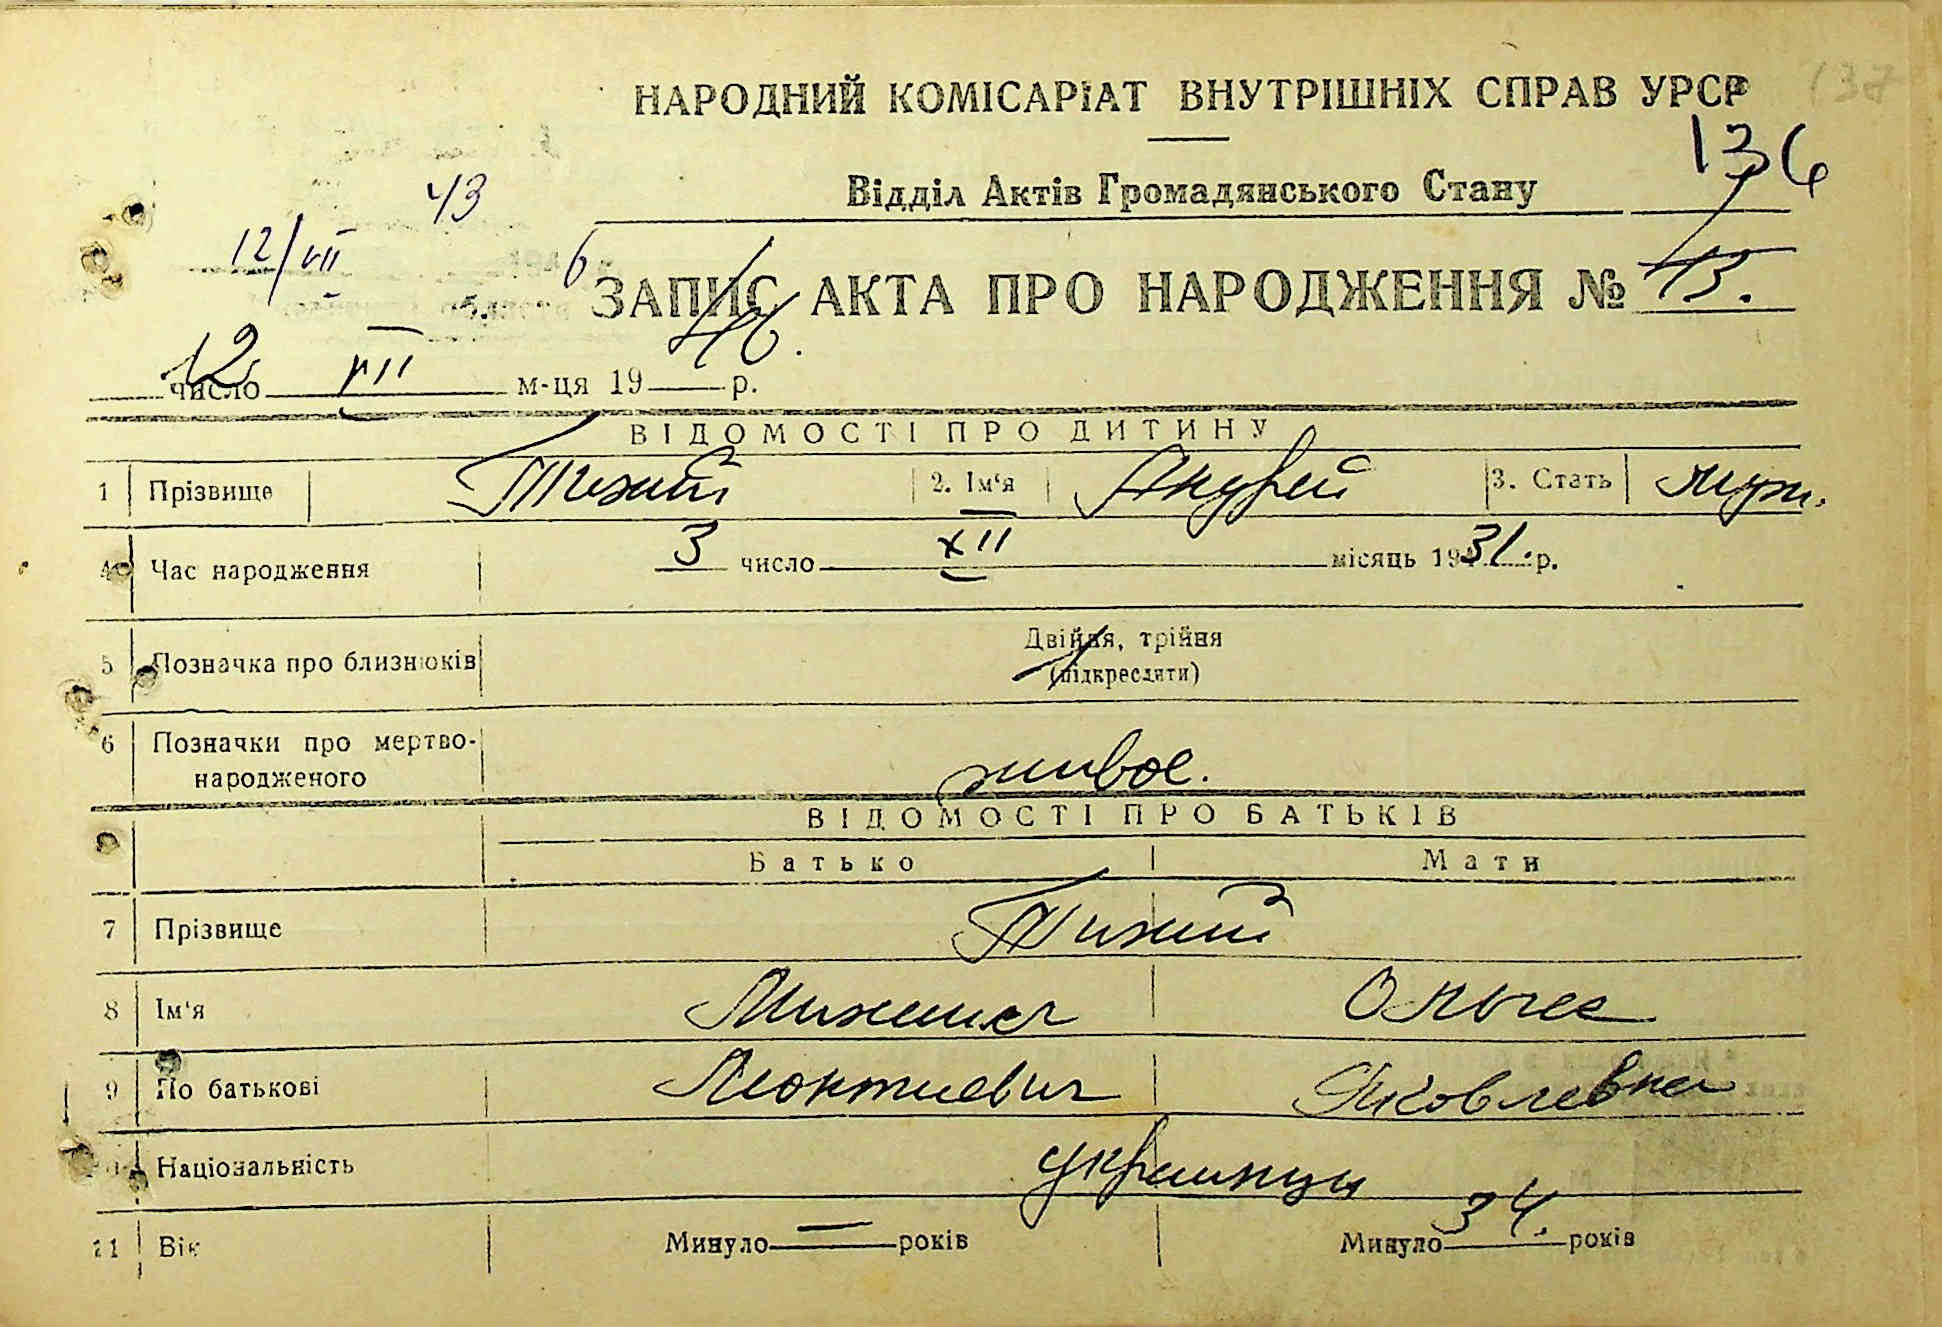 137
НАРОДНИЙ КОМІСАРІАТ ВНУТРІШНІХ СПРАВ УРСР
136
Відділ Актів Громадянського Стану
43
12/VII
ЗАПИС АКТА ПРО НАРОДЖЕННЯ №
12 число VII м-ця 19 46. р.
ВІДОМОСТІ ПРО ДИТИНУ
1 Прізвище Тихий 2. Ім'я Андрей 3. Стать муж.
4 Час народження 3 число XII місяць 1931. р.
5 Позначка про близнюків Двійня, трійня
(підкреслити)
6 Позначки про мертво-
народженого живое.
ВІДОМОСТІ ПРО БАТЬКІВ
Батько Мати
7 Прізвище Тихий
8 Ім'я Михаил Ольга
9 По батькові Леонтиевич Яковлевна
10 Національність украинцы
11 Вік Минуло — років Минуло 34. років